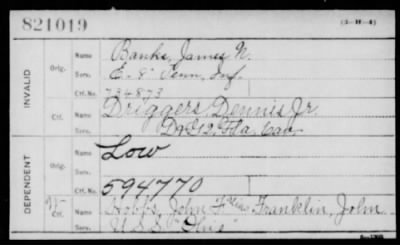 821019
(3-H-4)
INVALID
Orig.
Name Banks, James N.
Serv. E. 8" Tenn. Inf.
Ctf. No. 734873
Ctf.
Name Driggers, Dennis Jr.
Serv. D & G 2, Fla. Cav.
DEPENDENT
Orig.
Name Low
Serv.
Ctf. No. 594770
Ctf.
Name Hobbs, John F alias Franklin, John
Serv. U.S.S.